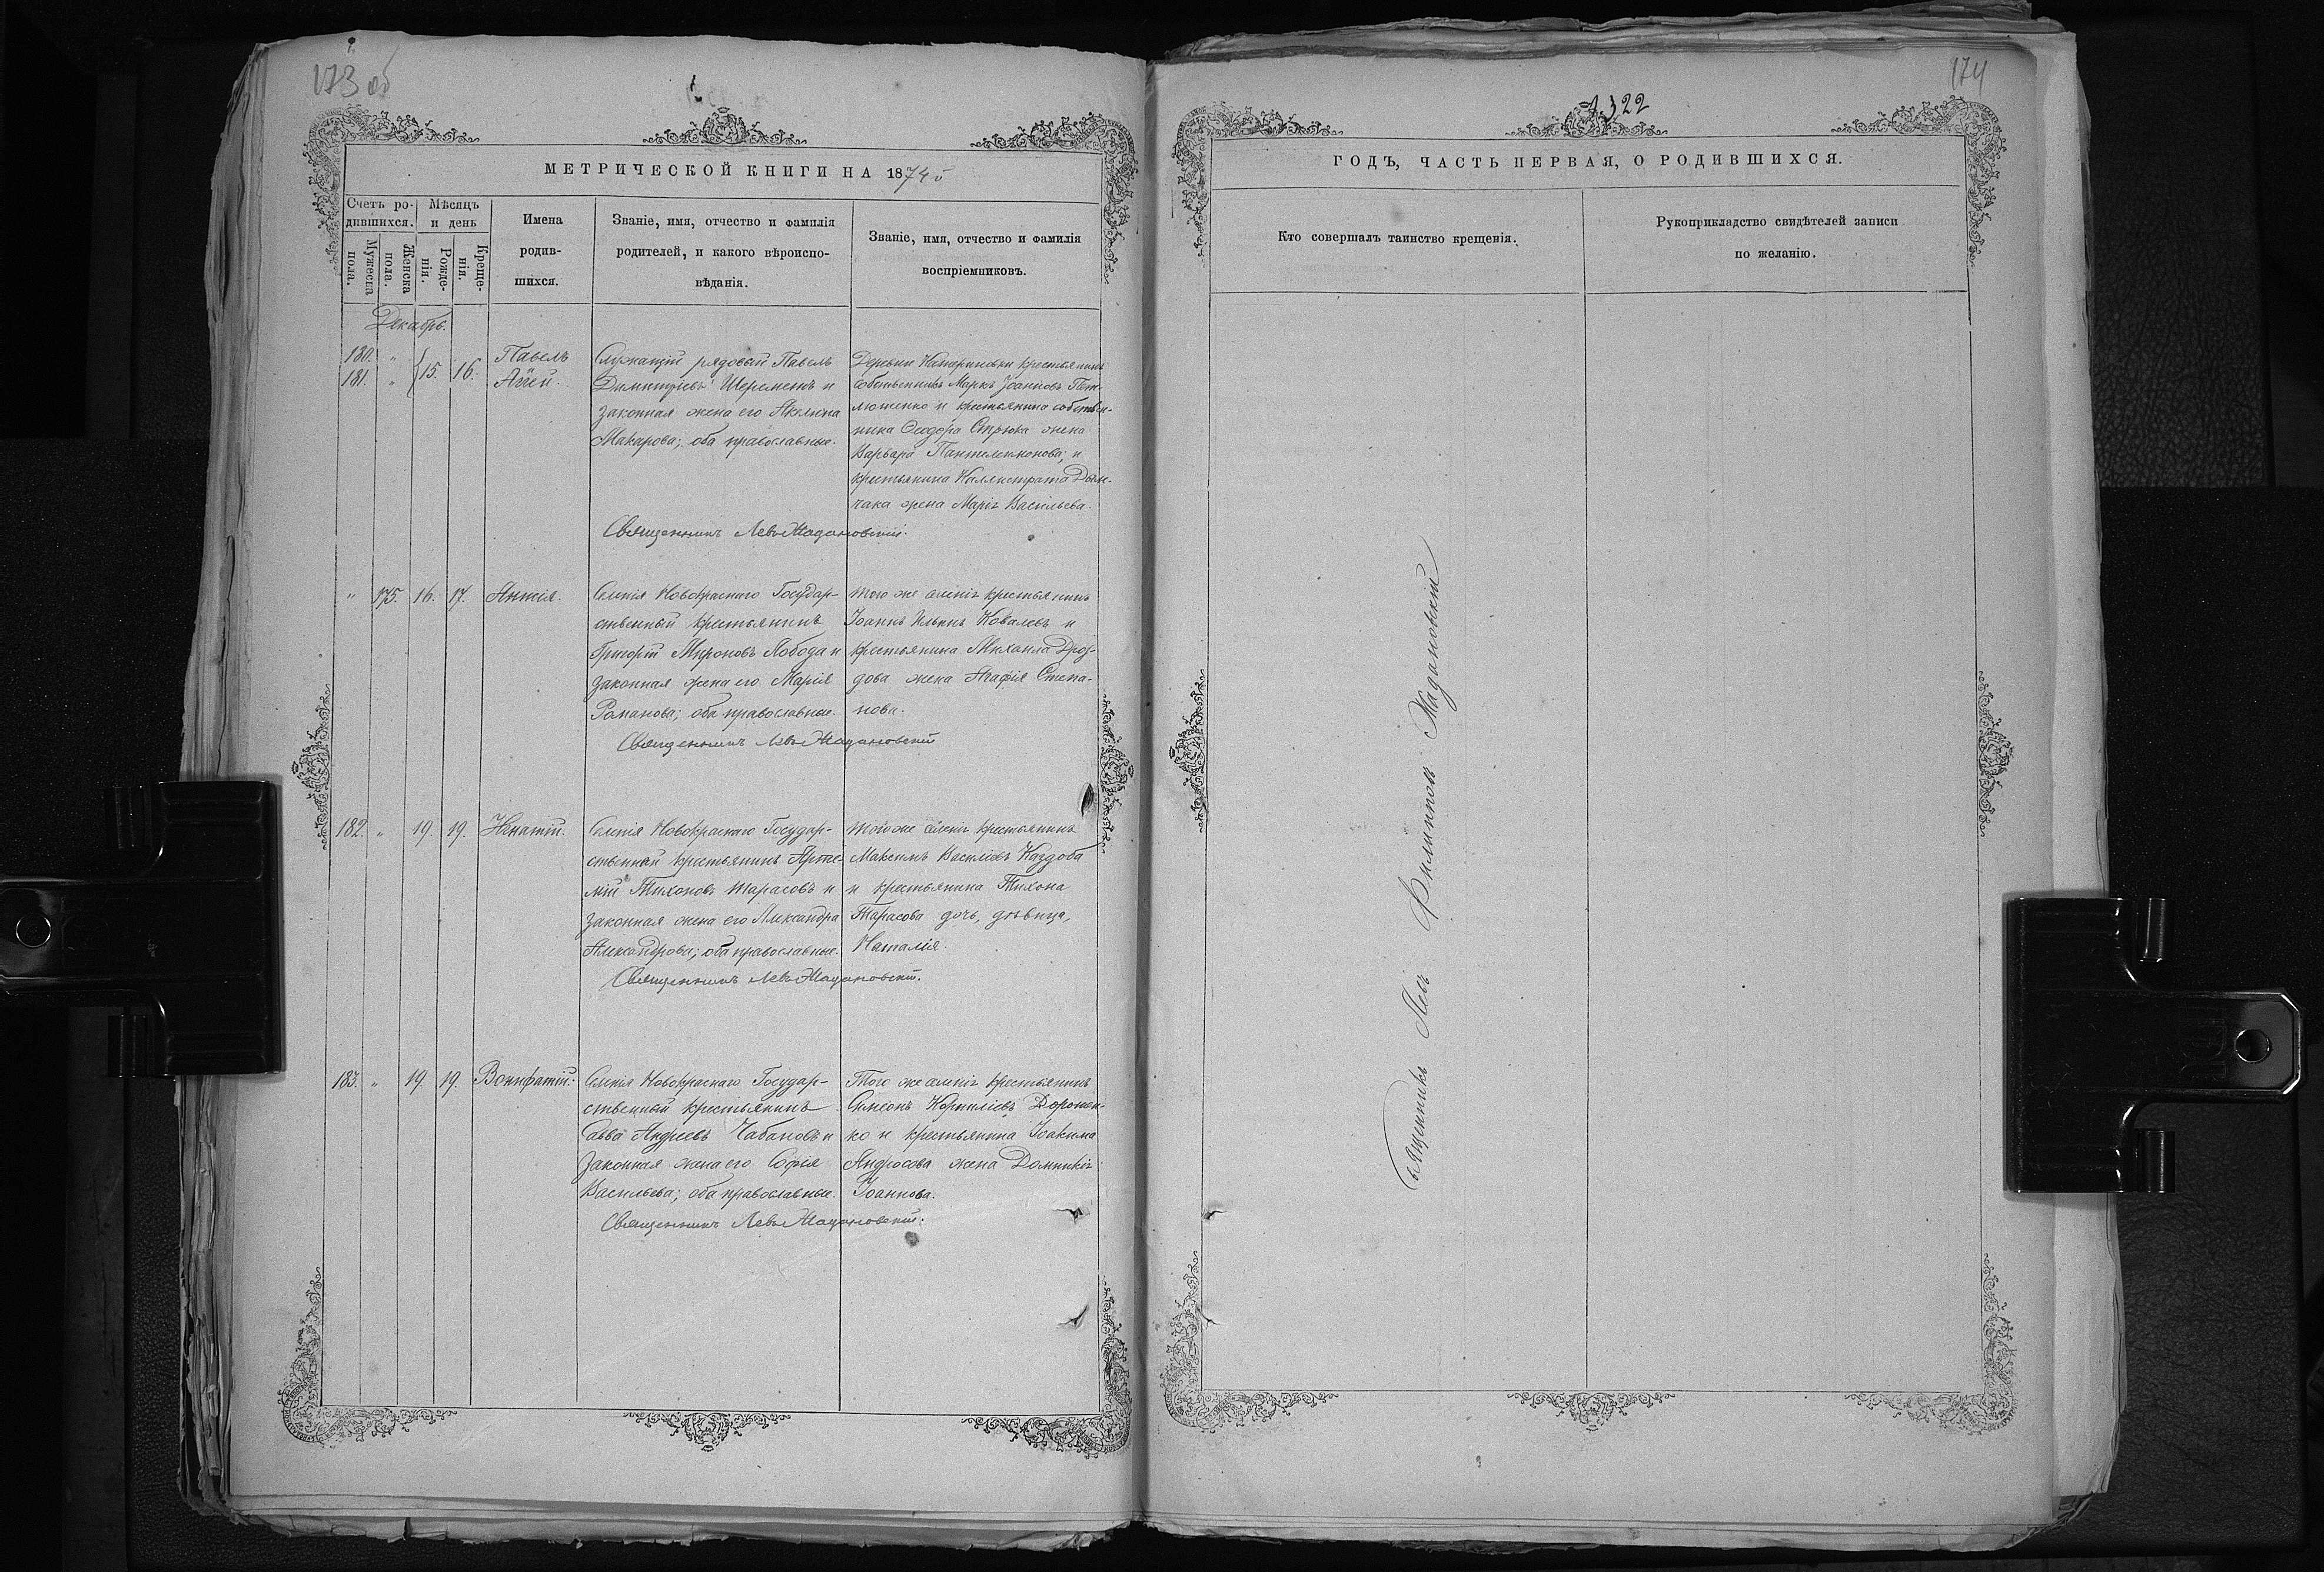 173 об
МЕТРИЧЕСКОЙ КНИГИ НА 1874й
Счетъ ро-
дившихся.
Мѣсяцъ
и день
Мужеска
пола.
Женска
пола.
Рожде-
нія.
Креще-
нія.
Имена
родив-
шихся.
Званіе, имя, отчество и фамилія
родителей, и какого вѣроиспо-
вѣданія.
Званіе, имя, отчество и фамилія
воспріемниковъ.
Декабрь.
180. „
181. „
15. 16.
Павелъ
Аггей.
Служащій рядовый Павелъ
Димитріевъ Шереметъ и
законная жена его Акилина
Макарова; оба православные.
Деревни крестьянинъ
собственникъ Маркъ Іоанновъ Пет-
люшенко и крестьянина собствен-
ника Ѳеодора Стрюка жена
Варвара Пантелеимонова; и
крестьянина Каллистрата
чака жена Марія Васильева.
Священникъ Левъ Жадановскій.
„ 175. 16. 17. Анисія.
Селенія Новокраснаго Государ-
ственный крестьянинъ
Григорій Мироновъ Лобода и
законная жена его Марія
Романова; оба православные.
того же селенія крестьянинъ
Іоаннъ Ильинъ Ковалевъ и
крестьянина Михаила Дроз-
дова жена Агафія Степа-
нова.
Священникъ Левъ Жадановскій
182. „ 19. 19. Игнатій.
Селенія Новокраснаго Государ-
ственный крестьянинъ Арте-
мій Тихоновъ Тарасовъ и
законная жена его Александра
Александрова; оба православные.
того же селенія крестьянинъ
Максимъ Василіевъ Каздоба
и крестьянина Тихона
Тарасова дочь, дѣвица,
Наталія.
Священникъ Левъ Жадановскій.
183. „ 19. 19. Вонифатій.
Селенія Новокраснаго Государ-
ственный крестьянинъ
Савва Андреевъ Чабановъ и
законная жена его Софія
Васильева; оба православные.
Того же селенія крестьянинъ
Симеонъ Корниліевъ Дорошен-
ко и крестьянина Іоакима
Андросова жена Домникія
Іоаннова.
Священникъ Левъ Жадановскій.
174
1322
ГОДЪ, ЧАСТЬ ПЕРВАЯ, О РОДИВШИХСЯ.
Кто совершалъ таинство крещенія.
Рукоприкладство свидѣтелей записи
по желанію.
Священникъ Левъ Филипповъ Жадановскій